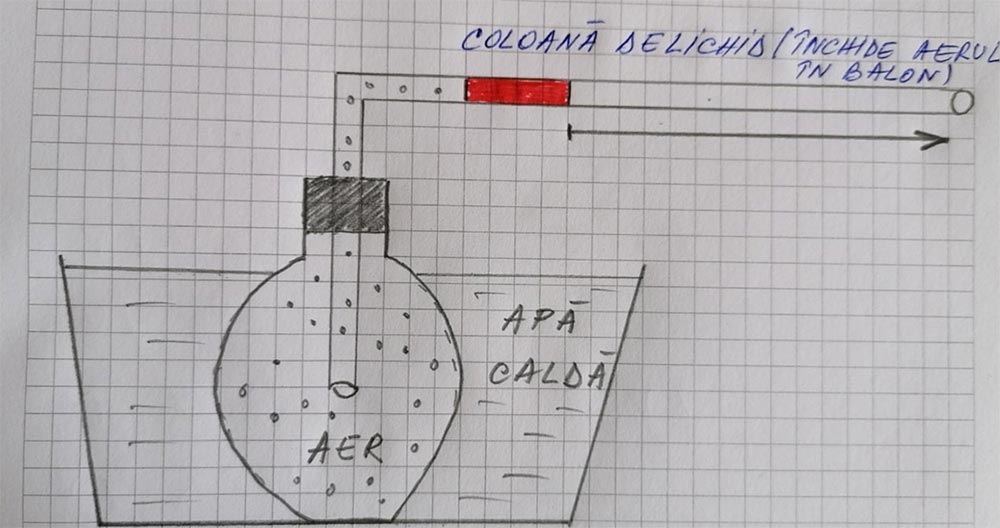 COLOANĂ DE LICHID (ÎNCHIDE AERUL
ÎN BALON)
APĂ
CALDĂ
AER